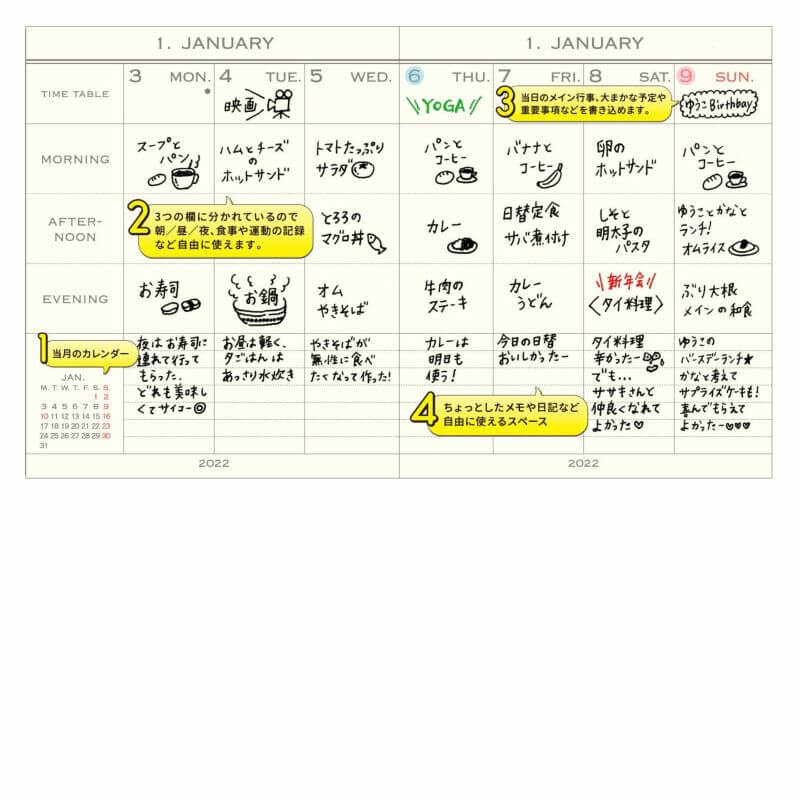 1. JANUARY
1. JANUARY
TIME TABLE
3 MON.
4 TUE.
5 WED.
6 THU.
7 FRI.
8 SAT.
9 SUN.
映画
YOGA
3 当日のメイン行事、大まかな予定や
重要事項などを書き込めます。
ゆうこBirthbay
MORNING
スープと
パン
ハムとチーズ
の
ホットサンド
トマトたっぷり
サラダ
パンと
コーヒー
バナナと
コーヒー
卵の
ホットサンド
パンと
コーヒー
AFTER-
NOON
2 3つの欄に分かれているので
朝/昼/夜、食事や運動の記録
など自由に使えます。
とろろの
マグロ丼
カレー
日替定食
サバ煮付け
しそと
明太子の
パスタ
ゆうことかなと
ランチ!
オムライス
EVENING
お寿司
お鍋
オム
やきそば
牛肉の
ステーキ
カレー
うどん
新年会
〈タイ料理〉
ぶり大根
メインの和食
1 当月のカレンダー
JAN.
M. T. W. T. F. S. S.
1 2
3 4 5 6 7 8 9
10 11 12 13 14 15 16
17 18 19 20 21 22 23
24 25 26 27 28 29 30
31
夜はお寿司に
連れて行って
もらった.
どれも美味し
くてサイコー◎
お昼は軽く、
夕ごはんは
あっさり水炊き
やきそばが
無性に食べ
たくなって作った!
カレーは
明日も
使う!
今日の日替
おいしかったー
4 ちょっとしたメモや日記など
自由に使えるスペース
タイ料理
辛かったー
でも...
ササキさんと
仲良くなれて
よかった♡
ゆうこの
バースデーランチ★
かなと考えて
サプライズケーキも!
喜んでもらえて
よかったー♡♡♡
2022
2022